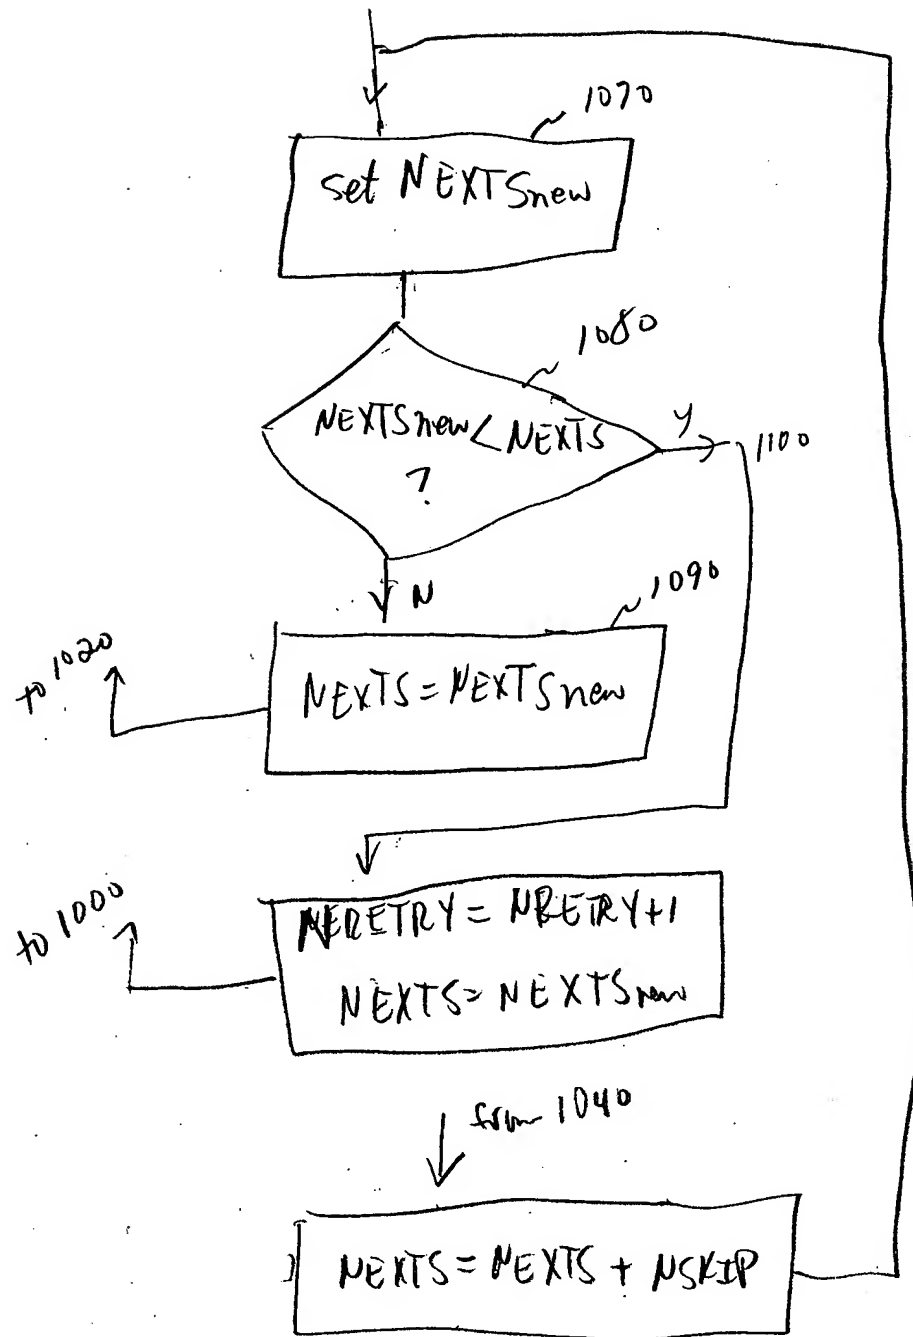 1070
set NEXTSnew
1080
NEXTSnew<NEXTS
?
Y
1100
N
1090
to 1020
NEXTS=NEXTSnew
to 1000
NRETRY=NRETRY+1
NEXTS=NEXTSnew
from 1040
NEXTS=NEXTS + NSKIP